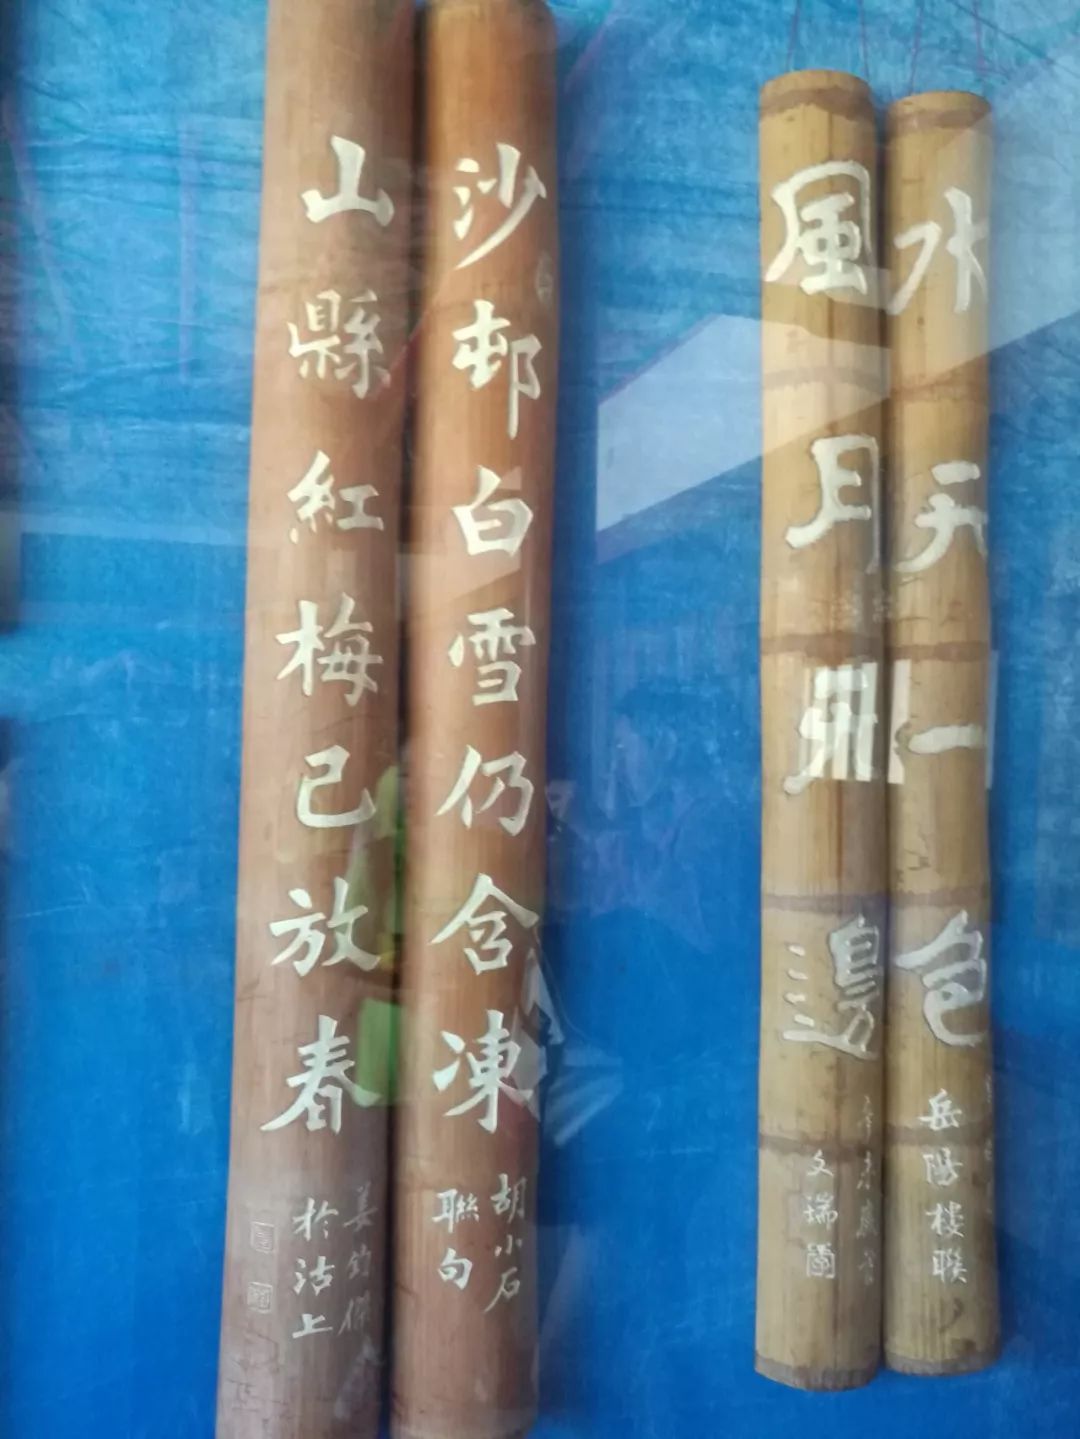 水天一色
岳陽楼聯
風月無邊
辛未歲
文瑞
沙邨白雪仍含凍
胡小石
聯句
山縣紅梅已放春
姜鈞傑
於沽上